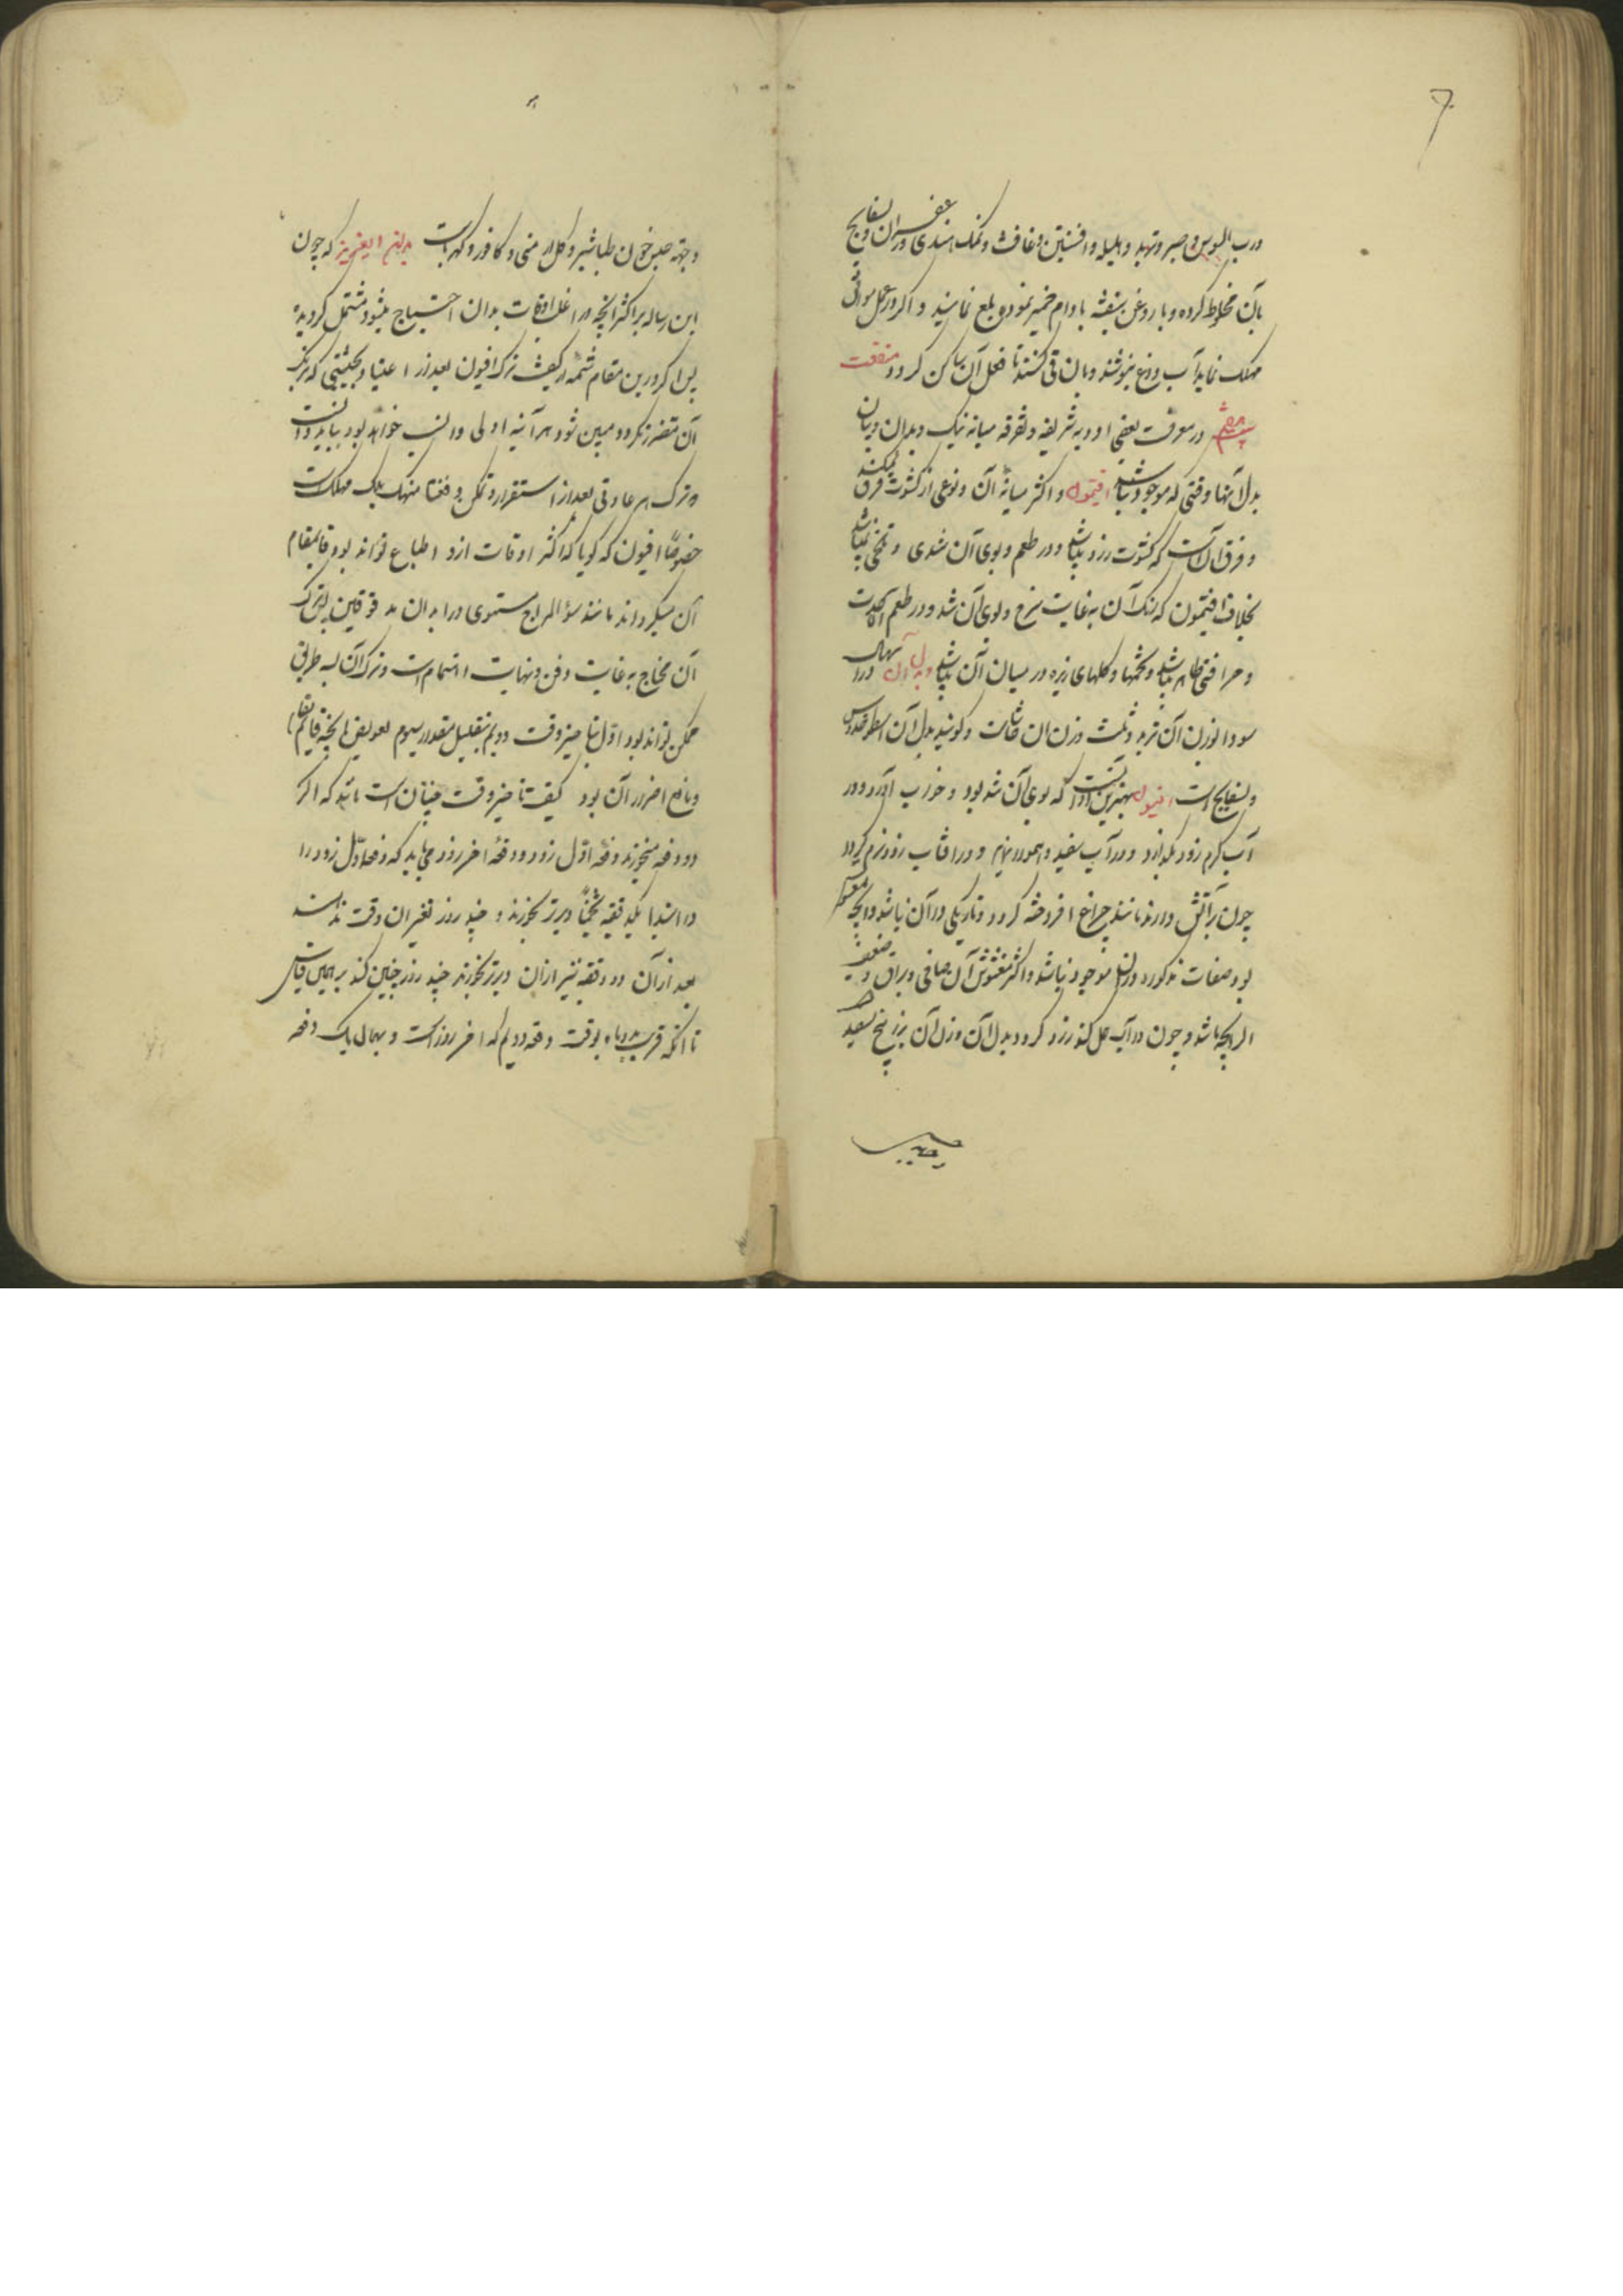 و رب السوس و صبر و تربد و هلیله و افسنتین و غافث و نمک هندی و زعفران و بسفایج
بآن مخلوط کرده و با روغن بنفشه بادام خمیر نموده بلع نمایند و اگر در عمل
مهلک نماید آب و دوغ بنوشند و بان قی کنند تا فعل آن ساکن گردد منفعت
در معرفت بعضی ادویه شریفه و تفرقه میانه نیک و بد آن و بیان
بدل آنها وقتی که موجود نباشند افتیمون و اکثر میانه آن و نوعی از کشوث فرق نمیکنند
و فرق آنست که کشوث زرد باشد و در طعم و بوی آن تندی و تلخی نباشد
بخلاف افتیمون که رنگ آن به غایت سرخ و بوی آن تند و در طعم آن حدت
و حرافتی ظاهر باشد و تخمها و گلهای ریزه در میان آن باشد و بدل آن در اسهال
سودا بوزن آن تربد و ثلث وزن آن حاشاست و گویند بدل آن اسطوخودوس
و بسفایج است افیون بهترین آن آنست که بوی آن تند بود و خواب آورد و در
آب گرم زود بگدازد و در آب سفید و هموار نماید و در آفتاب زود نرم گردد
چون بر آتش دارند مانند چراغ افروخته گردد و تاریکی در آن نباشد و آنچه مغشوش
بود صفات مذکوره در آن موجود نباشد و اکثر مغشوش آن صافی و براق و ضعیف
الرایحه باشد و چون در آب حل کنند زرد گردد و بدل آن وزن آن بزرالبنج سفید
و جهة حبس خون طباشیر و گل ارمنی و کافور و کهرباست بدان ای عزیز که چون
این رساله بر اکثر آنچه در اغلب اوقات بدان احتیاج میشود مشتمل گردیده
پس اگر درین مقام شمه در کیفیت ترک افیون بعد از اعتیاد بحیثیتی که بترک
آن متضرر نگردد مبین شود هر آینه اولی و انسب خواهد بود بباید دانست
که ترک هر عادتی بعد از استقرار و تمکن دفعتا منهک بلکه مهلک است
خصوصاً افیون که گویا که اکثر اوقات از ذو اطباع تواند بود قایمقام
آن میگرداند مانند سوء المزاج مستوی در ابدان مدقوقین پس ترک
آن محتاج به غایت دقت و نهایت اهتمام است و ترک آن بسه طریق
ممکن تواند بود اول بتاخیر وقت دویم بتقلیل مقدار سیوم تعویض بآنچه قایم مقام
و مانع اضرار آن بود کیفیت تاخیر وقت چنان است باید که اگر
دو دفعه میخورند دفعه اول روز و دفعه آخر روز می باید که دفعه اول روز را
در ابتدا یکدقیقه تخمیناً دیرتر بخورند و چند روز تغییر آن وقت ندهند
بعد از آن دو دقیقه نیز از آن دیرتر بخورند چند روز چنین کنند بر همین قیاس
تا آنکه قریب دو ماه بوقت دفعه دویم که آخر روز است و بهمان یک دفعه